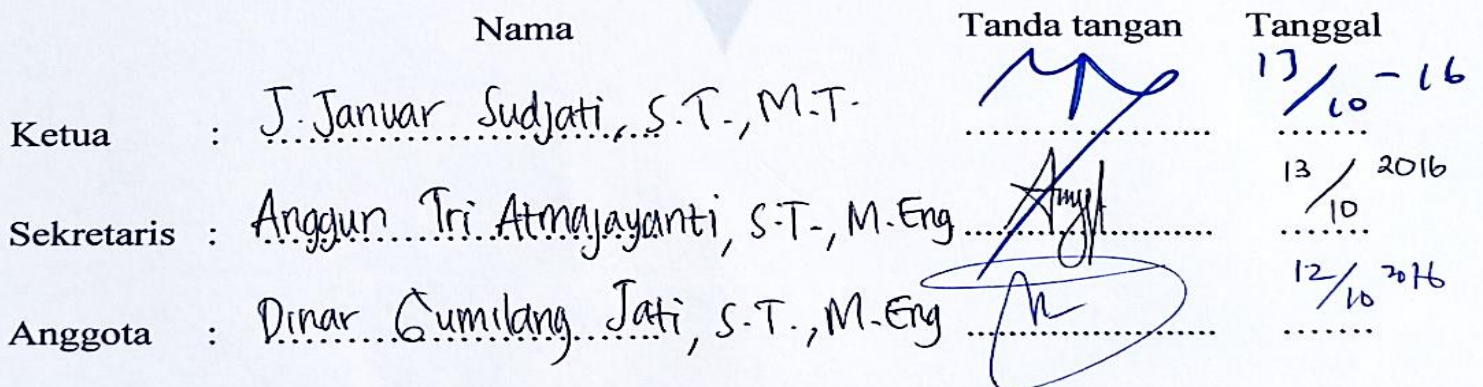 Nama Tanda tangan Tanggal
Ketua : J. Januar Sudjati, S.T., M.T. 13/10 - 16
Sekretaris : Anggun Tri Atmajayanti, S.T., M.Eng 13/10 2016
Anggota : Dinar Gumilang Jati, S.T., M.Eng 12/10 2016